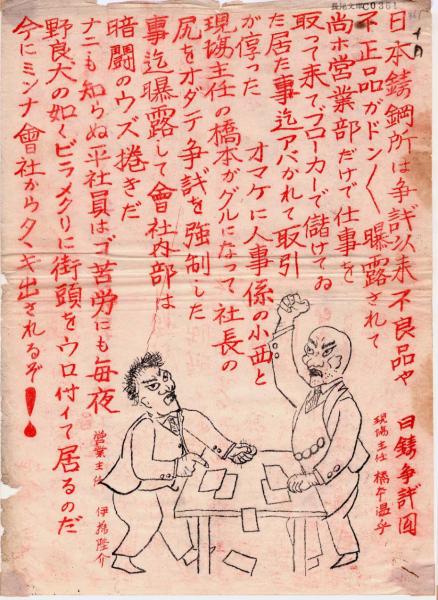 C0361
日本鋳鋼所は争議以来 不良品や
不正品がドン〱曝露されて
尚ホ営業部だけで仕事を
取って来てブローカーで儲けてゐ
た居た事迄アバかれて取引
が停った オマケに人事係の小西と
現場主任の橋本がグルになって社長の
尻をオダテ争議を強制した
事迄曝露して會社内部は
暗闘のウズ捲きだ
ナニも知らぬ平社員はゴ苦労にも毎夜
野良犬の如くビラメクリに街頭をウロ付イて居るのだ
今にミンナ會社からタヽキ出されるぞ！
日鋳争議団
現場主任 橋本
営業主任 伊藤隆介